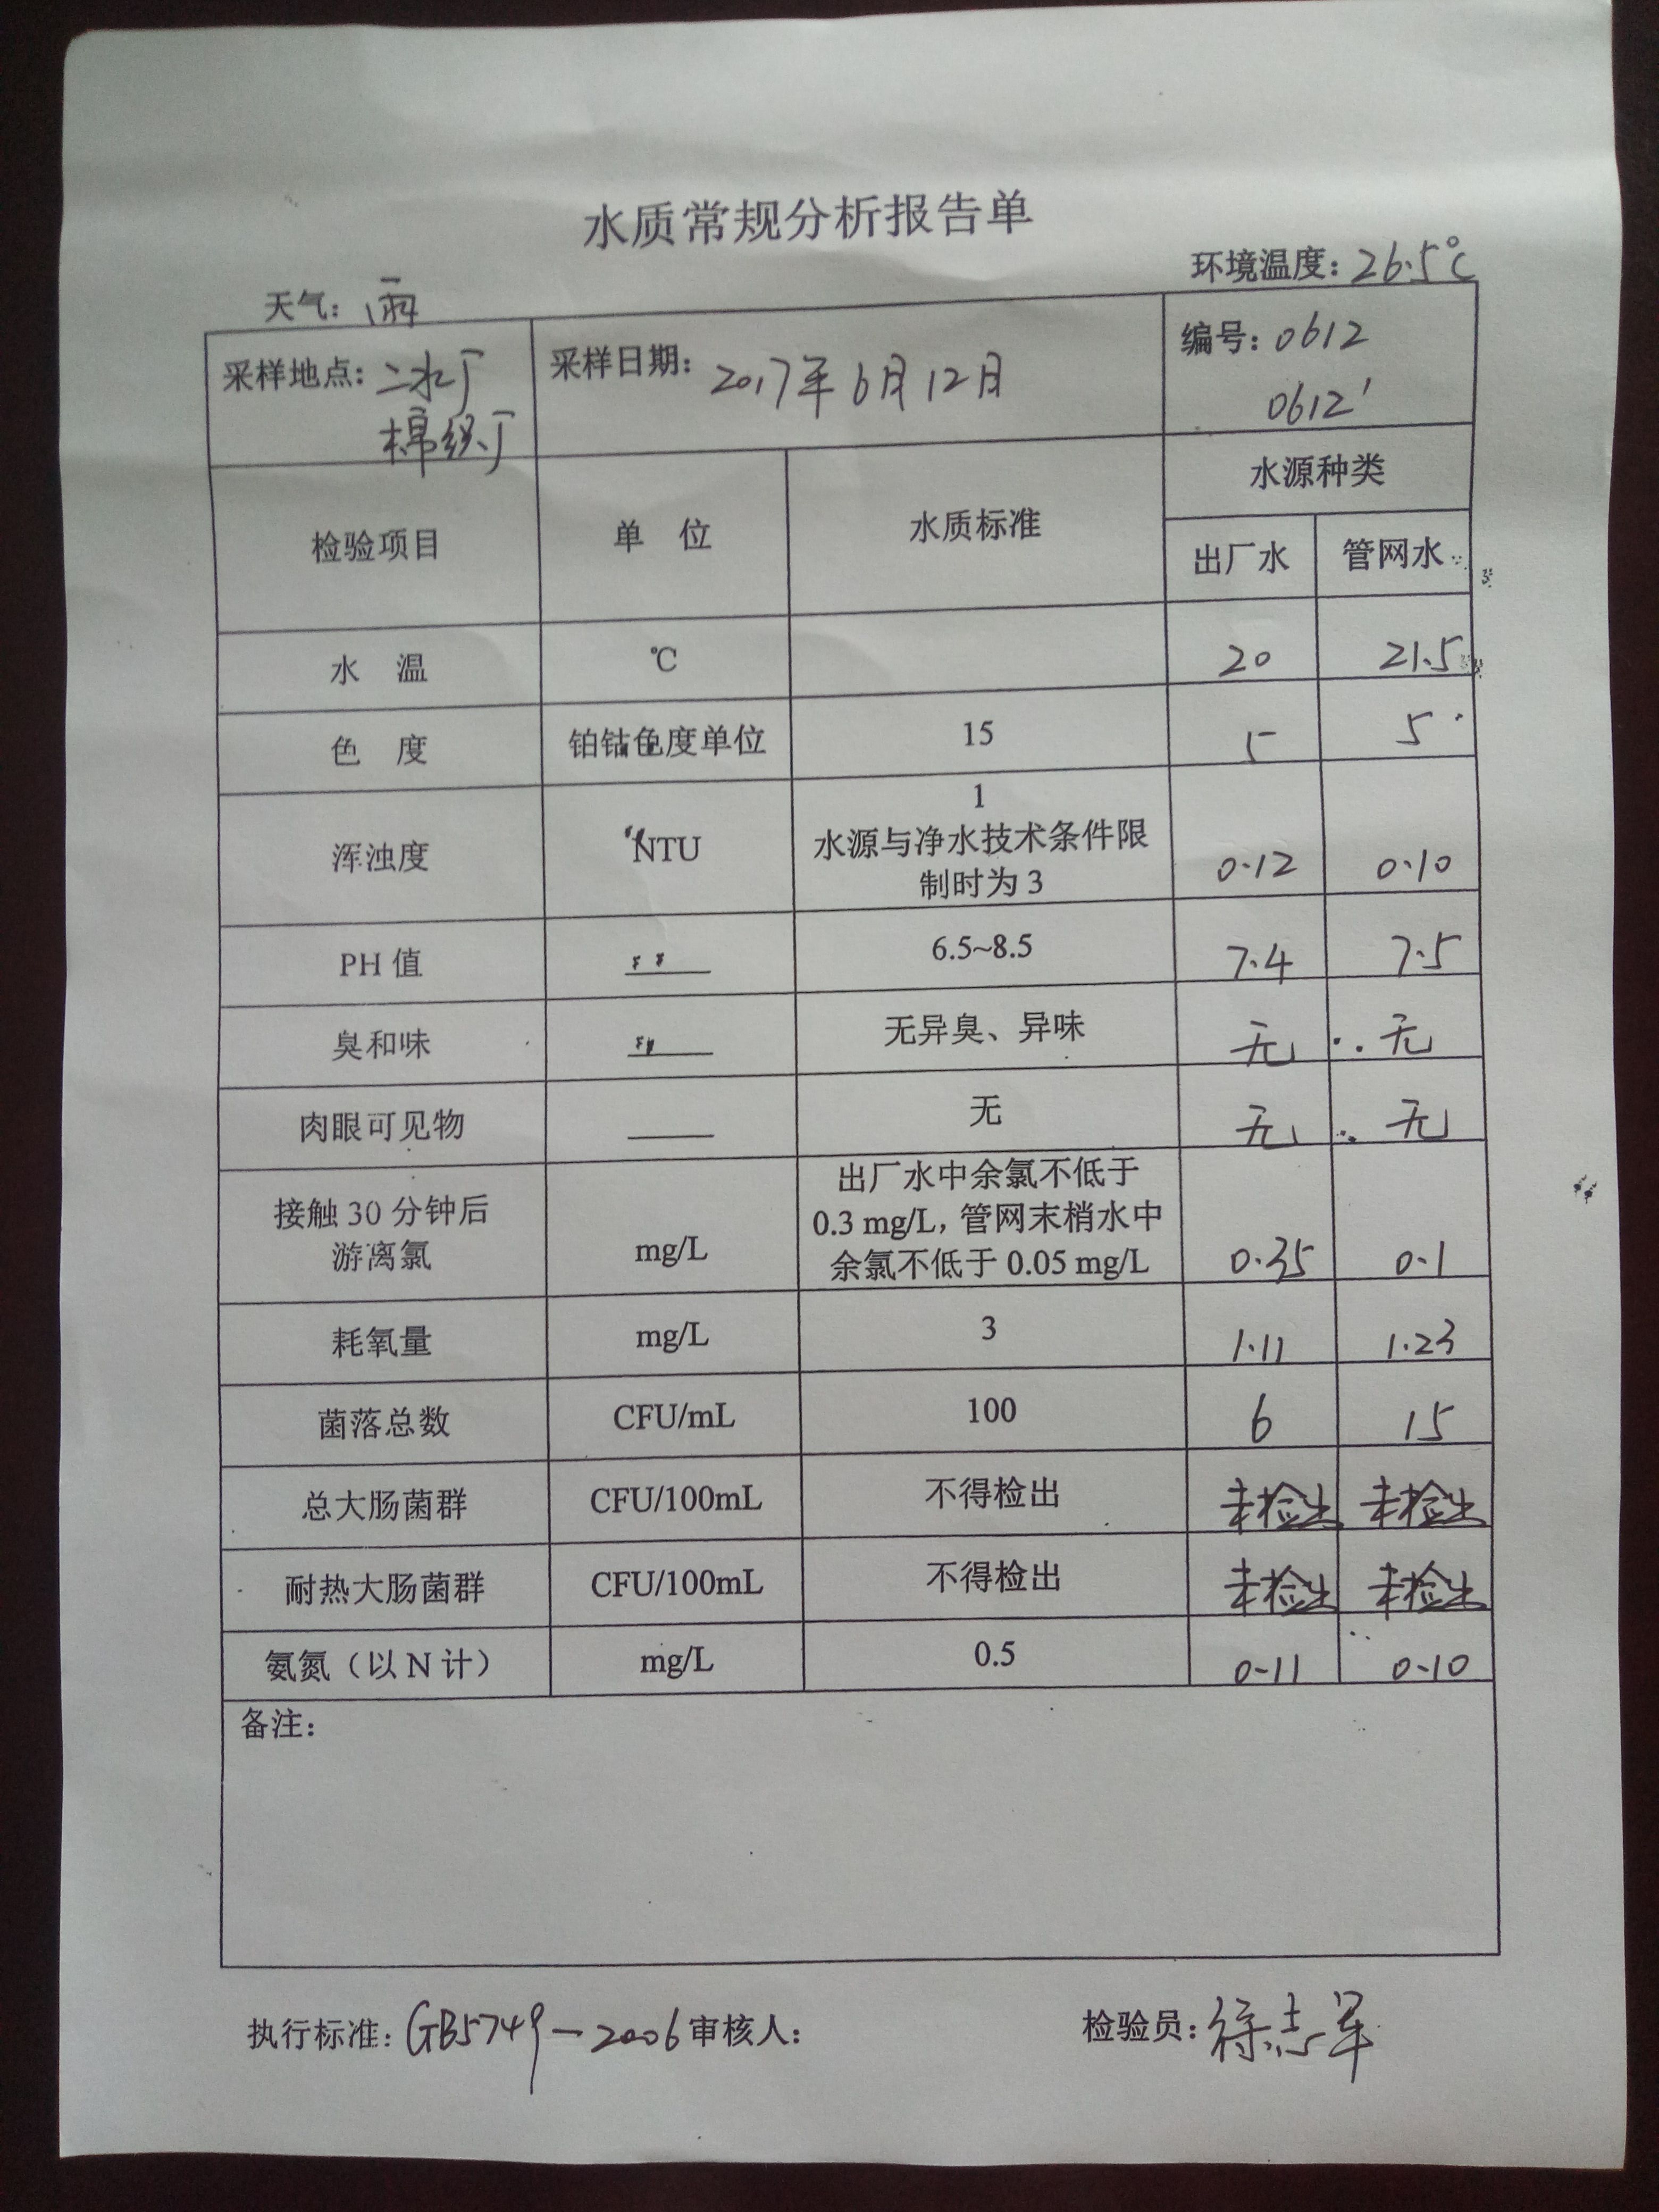 水质常规分析报告单
环境温度：26.5℃
天气：雨
采样地点：二水厂
棉织厂
采样日期：2017年6月12日
编号：0612
0612'
检验项目 单 位 水质标准 水源种类
出厂水 管网水
水 温 ℃ 20 21.5
色 度 铂钴色度单位 15 5 5
浑浊度 NTU 1
水源与净水技术条件限
制时为 3
0.12 0.10
PH 值 —— 6.5~8.5 7.4 7.5
臭和味 —— 无异臭、异味 无 无
肉眼可见物 —— 无 无 无
接触 30 分钟后
游离氯
mg/L
出厂水中余氯不低于
0.3 mg/L，管网末梢水中
余氯不低于 0.05 mg/L
0.35 0.1
耗氧量 mg/L 3 1.11 1.23
菌落总数 CFU/mL 100 6 15
总大肠菌群 CFU/100mL 不得检出 未检出 未检出
耐热大肠菌群 CFU/100mL 不得检出 未检出 未检出
氨氮（以 N 计） mg/L 0.5 0.11 0.10
备注：
执行标准：GB5749-2006 审核人： 检验员：徐志军